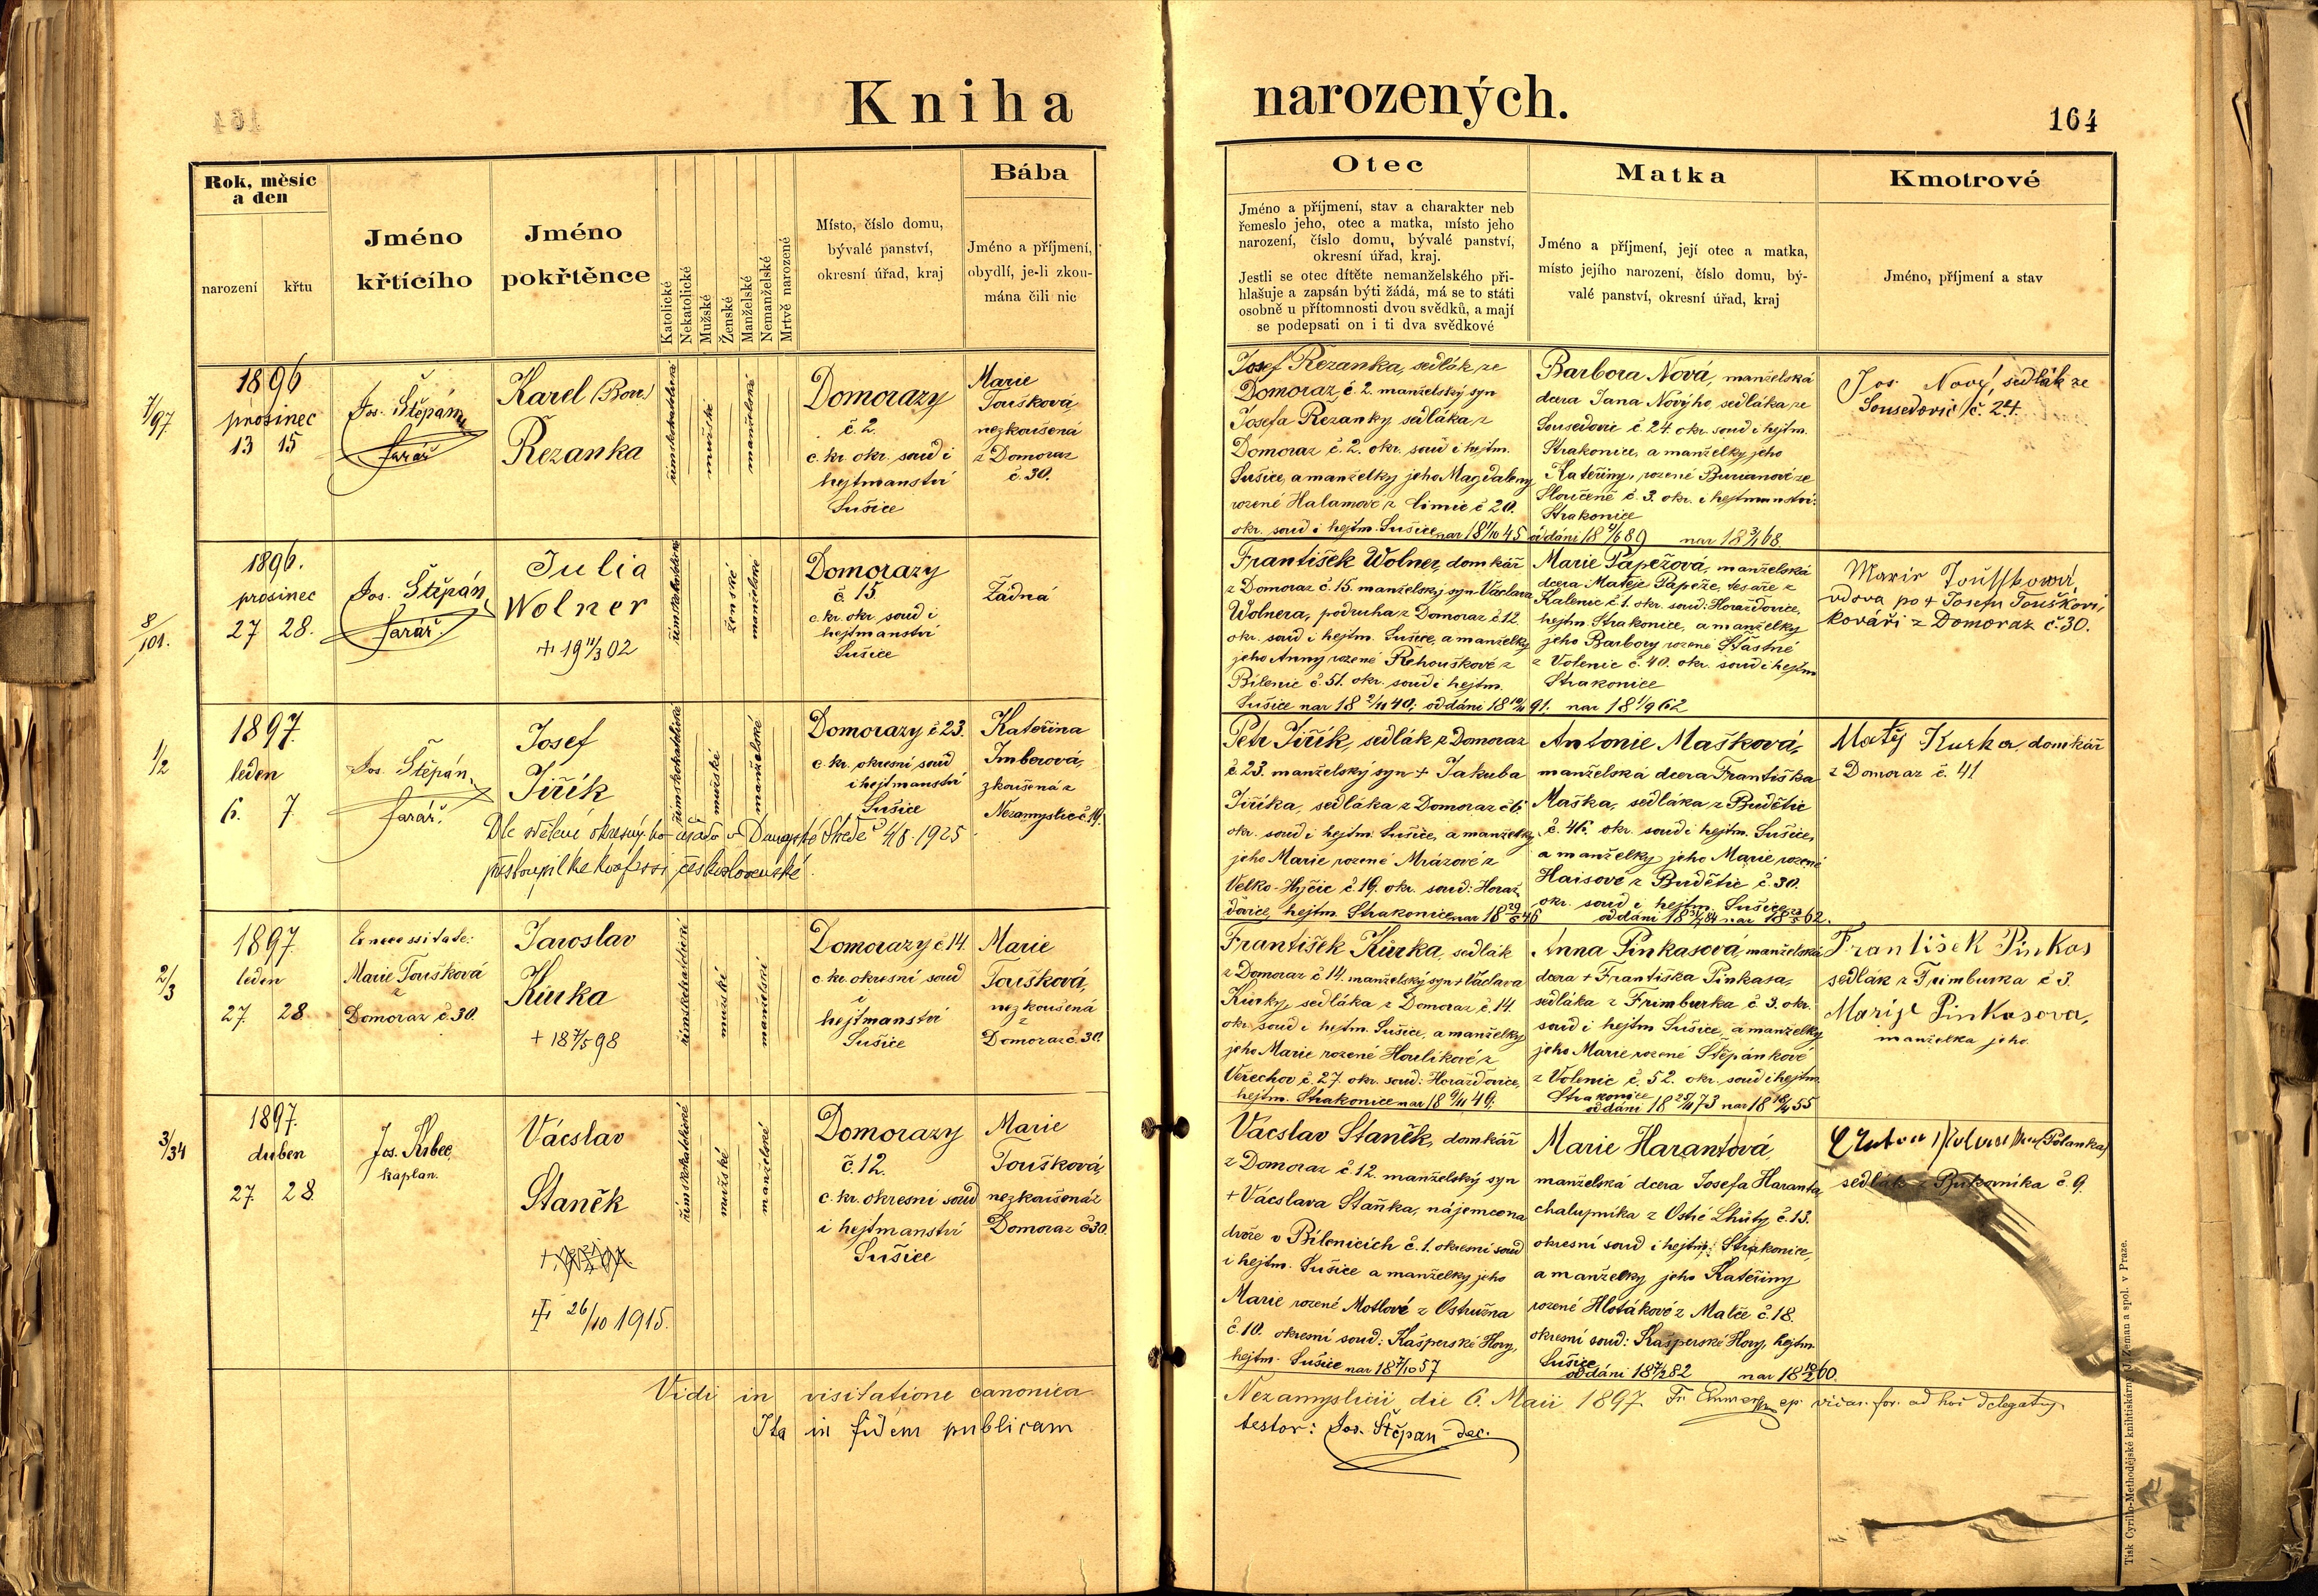 Kniha
narozených.
164
Rok, měsíc
a den
narození
křtu
Jméno
křtícího
Jméno
pokřtěnce
Katolické
Nekatolické
Mužské
Ženské
Manželské
Nemanželské
Mrtvě narozené
Místo, číslo domu,
bývalé panství,
okresní úřad, kraj
Bába
Jméno a příjmení,
obydlí, je-li zkou-
mána čili nic
Otec
Jméno a příjmení, stav a charakter neb
řemeslo jeho, otec a matka, místo jeho
narození, číslo domu, bývalé panství,
okresní úřad, kraj.
Jestli se otec dítěte nemanželského při-
hlašuje a zapsán býti žádá, má se to státi
osobně u přítomnosti dvou svědků, a mají
se podepsati on i ti dva svědkové
Matka
Jméno a příjmení, její otec a matka,
místo jejího narození, číslo domu, bý-
valé panství, okresní úřad, kraj
Kmotrové
Jméno, příjmení a stav
7/97
1896
prosinec
13 15
Jos. Štěpán,
farář
Karel
Řezanka
římskokatolické
mužské
manželské
Domorazy
č. 2.
c. kr. okr. soud i
hejtmanství
Sušice
Marie
Toušková
nezkoušená
z Domoraz
č. 30.
Josef Řezanka, sedlák ze
Domoraz č. 2. manželský syn
Josefa Řezanky sedláka z
Domoraz č. 2. okr. soud i hejtm.
Sušice, a manželky jeho Magdaleny
rozené Halamové z Čimic č 20.
okr. soud i hejtm. Sušice nar 18 1/10 45
Barbora Nová, manželská
dcera Jana Nového, sedláka ze
Sousedovic č. 24. okr. soud i hejtm.
Strakonice, a manželky jeho
Kateřiny, rozené Burianové ze
č. 3. okr. i hejtmanství:
Strakonice
oddáni 18 4/6 89 nar 18 3/1 68.
Jos. Nový, sedlák ze
Sousedovic č. 24.
8/101.
1896.
prosinec
27 28.
Jos. Štěpán,
farář.
Julia
Wolner
+ 19 11/3 02
římskokatolické
ženské
manželské
Domorazy
č 15
c. kr. okr. soud i
hejtmanství
Sušice
Žádná
František Wolner, domkář
z Domoraz č. 15. manželský syn Václava
Wolnera, podruha z Domoraz č 12.
okr. soud i hejtm. Sušice, a manželky
jeho Anny rozené Řehouškové z
Bílenic č. 51. okr. soud i hejtm.
Sušice nar 18 2/11 40; oddáni 18 10/11 91.
Marie Papežová, manželská
dcera Matěje Papeže, tesaře z
Kalenic č 1. okr. soud: Horažďovice,
hejtm. Strakonice, a manželky
jeho Barbory rozené Šťastné
z Volenic č. 40. okr. soud i hejtm
Strakonice
nar 18 1/9 62
Marie Toušková
vdova po + Josefu Touškovi,
kováři z Domoraz č. 30.
1/2
1897
leden
6. 7.
Jos. Štěpán,
farář.
Josef
Jiřík
římskokatolické
mužské
manželské
Domorazy č 23.
c. kr. okresní soud
i hejtmanství
Sušice
Kateřina
Imberová,
zkoušená z
Nezamyslic č. 14.
Dle sdělení okresního úřadu v Dunajské Středě 4/8. 1925
přestoupil ke konfessi československé.
Petr Jiřík, sedlák z Domoraz
č 23. manželský syn + Jakuba
Jiříka, sedláka z Domoraz č 6.
okr. soud i hejtm. Sušice, a manželky
jeho Marie rozené Mrázové z
Velko-Hyčic č. 19. okr. soud: Horaž-
ďovice, hejtm. Strakonice nar 18 29/6 46
Antonie Mašková,
manželská dcera Františka
Maška, sedláka z Budětic
č. 46. okr. soud i hejtm. Sušice,
a manželky jeho Marie rozené
Haisové z Budětic č. 30.
okr. soud i hejtm. Sušice
Matěj Kurka, domkář
z Domoraz č. 41
2/3
1897
leden
27. 28.
Ex necessitate:
Marie Toušková
z
Domoraz č. 30.
Jaroslav
Kůrka
+ 18 7/5 98
římskokatolické
mužské
manželské
Domorazy č 14.
c. kr. okresní soud
i
hejtmanství
Sušice
Marie
Toušková,
nezkoušená
z
Domoraz č. 30.
František Kůrka, sedlák
z Domoraz č 14. manželský syn + Václava
Kůrky, sedláka z Domoraz č. 14.
okr. soud i hejtm. Sušice, a manželky
jeho Marie rozené Houlíkové z
Veřechov č. 27. okr. soud: Horažďovice,
hejtm. Strakonice nar 18 9/11 49;
Anna Pinkasová manželská
dcera + Františka Pinkasa,
sedláka z Frimburka č 3. okr.
soud i hejtm Sušice, a manželky
jeho Marie rozené Štěpánkové
z Volenic č. 52. okr. soud i hejtm.
Strakonice
oddáni 18 25/11 73 nar 18 18/4 55
František Pinkas
sedlák z Frimburka č 3.
Marije Pinkasova,
manželka jeho.
3/34
1897.
duben
27. 28.
Jos. Kubec,
kaplan.
Vácslav
Staněk
+ 26/10 1915.
římskokatolické
mužské
manželské
Domorazy
č. 12.
c. kr. okresní soud
i hejtmanství
Sušice
Marie
Toušková,
nezkoušená z
Domoraz č 30.
Vácslav Staněk, domkář
z Domoraz č 12. manželský syn
+ Vácslava Staňka, nájemce na
dvoře v Bílenicích č. 1. okresní soud
i hejtm. Sušice a manželky jeho
Marie rozené Motlové z Ostružna
č. 10. okresní soud: Kašperské Hory,
hejtm. Sušice nar 18 7/10 57
Marie Harantová,
manželská dcera Josefa Haranta
chalupníka z Ostré Lhůty č. 13.
okresní soud i hejtm: Strakonice,
a manželky jeho Kateřiny
rozené Hlotákové z Malče č. 18.
okresní soud: Kašperské Hory, hejtm.
Sušice
oddáni 18 7/2 82 nar 18 18/2 60.
(Polanka)
sedlák z Bukovníka č. 9.
Vidi in visitatione canonica
Nezamyslicii die 6. Maii 1897
ep. vicar. for. ad hoc delegatus.
Ita in fidem publicam
testor: Jos. Štěpán dec.
Tisk Cyrillo-Methodějské knihtiskárny J. Zeman a spol. v Praze.